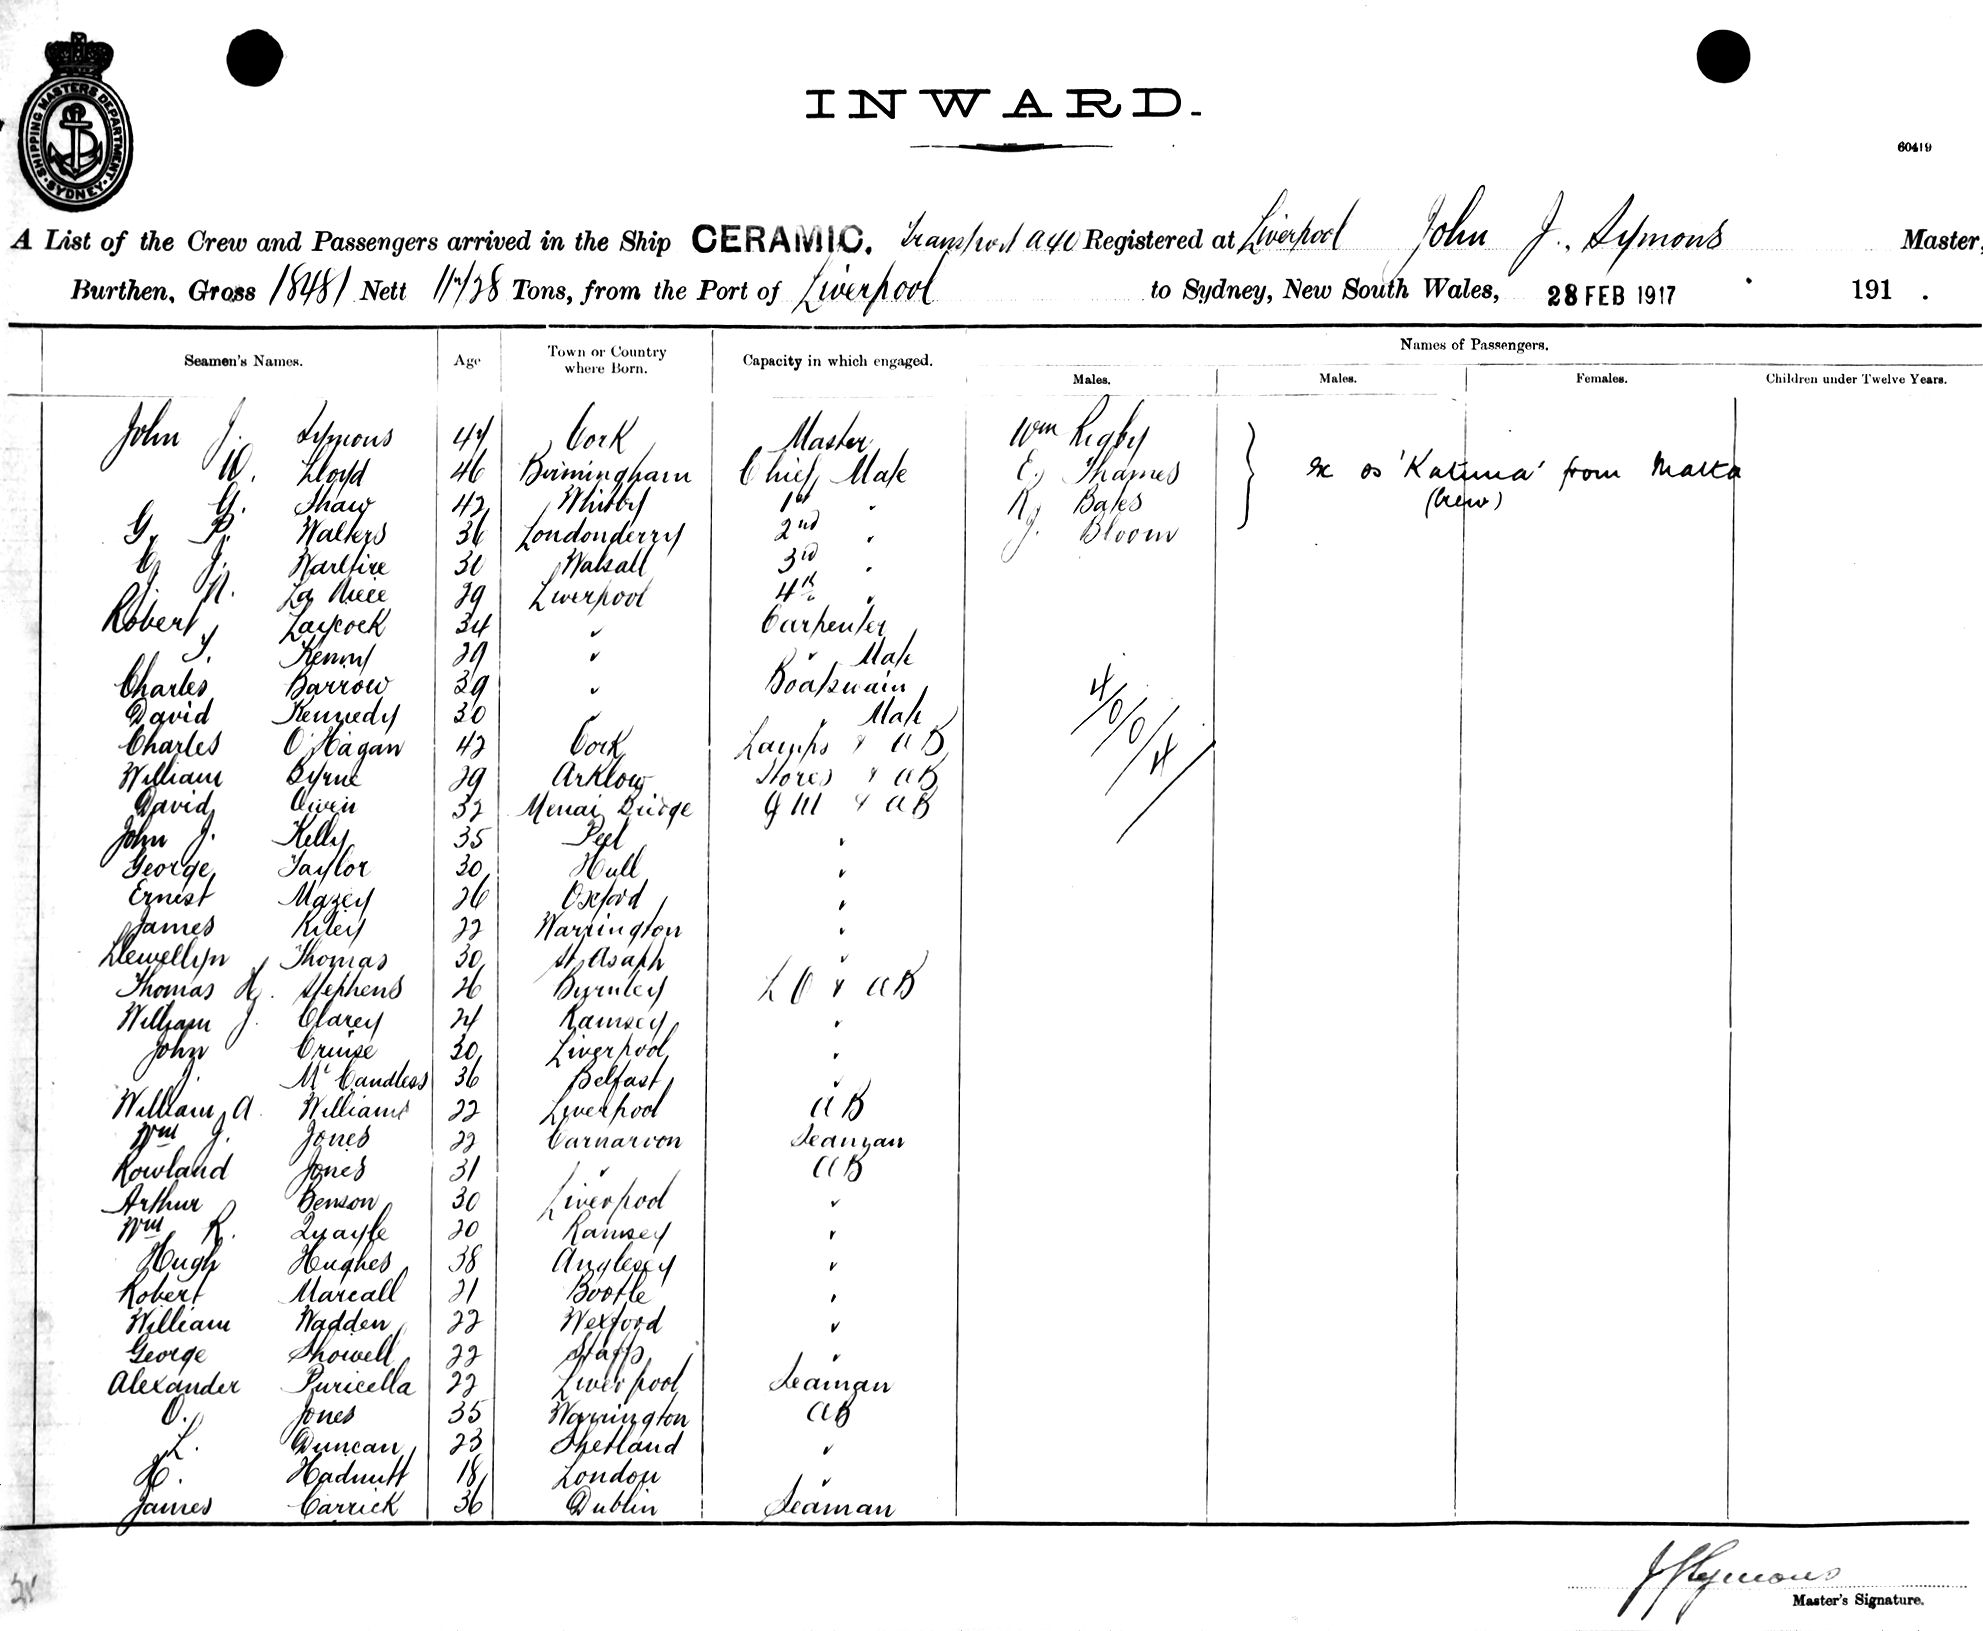 SHIPPING MASTERS DEPARTMENT · SYDNEY ·
INWARD.
60419
A List of the Crew and Passengers arrived in the Ship CERAMIC. Transport A40 Registered at Liverpool John J. Symons Master,
Burthen, Gross 18481 Nett Tons, from the Port of Liverpool to Sydney, New South Wales, 28 FEB 1917 191 .
Names of Passengers.
Seamen's Names. Age Town or Country where Born. Capacity in which engaged. Males. Males. Females. Children under Twelve Years.
John J. Symons 47 Cork Master Wm Rigby
W. Lloyd 46 Birmingham Chief Mate E. Thames ex ss 'Katuna' from Malta
G. Shaw 42 Whitby 1st " R. Bates (Crew)
G. P. Walters 36 Londonderry 2nd " J. Bloom
C. J. 30 Walsall 3rd "
J. N. La Niece 29 Liverpool 4th "
Robert Laycock 34 " Carpenter
J. Kenny 29 " " Mate
Charles Barrow 39 " Boatswain
David Kennedy 30 " " Mate
Charles O'Hagan 42 Cork Lamps & AB
William Byrne 29 Arklow Stores & AB
David Owen 32 Menai Bridge Q M & AB
John J. Kelly 35 Peel "
George Taylor 30 Hull "
Ernest Mazey 26 Oxford "
James Riley 22 Warrington "
Llewellyn Thomas 30 St Asaph "
Thomas H. Stephens 26 Burnley L O & AB
William J. Clarey 24 Ramsey "
John Cruise 30 Liverpool "
J. McCandless 36 Belfast "
William A. Williams 22 Liverpool AB
Wm J. Jones 22 Carnarvon Seaman
Rowland Jones 31 " AB
Arthur Benson 30 Liverpool "
Wm R. Quayle 20 Ramsey "
Hugh Hughes 38 Anglesey "
Robert Marcall 21 Bootle "
William Wadden 22 Wexford "
George Showell 22 Staffs "
Alexander Puricella 22 Liverpool Seaman
O. Jones 35 Warrington AB
L. Duncan 23 Shetland "
H. Hadnutt 18 London "
James Carrick 36 Dublin Seaman
4/0/0/4/
J J Symons
Master's Signature.